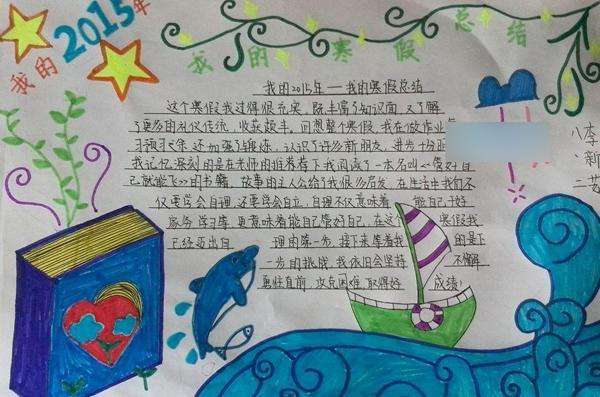 我的
2015年
我的寒假总结
我的2015年——我的寒假总结
这个寒假我过得很充实,既丰富了知识面,又了解
了更多的礼仪传统,收获颇丰。回想整个寒假,我在做作业
习预习之余,还加强了锻炼,认识了许多新朋友,进步十分
我记忆深刻的是在老师的推荐下我阅读了一本名叫《管好自
己就能飞》的书籍,故事的主人公给了我很多启发,在生活中我们不
仅要学会自理,还要学会自立,自理不仅意味着 能自己干好
家务 学习等,更意味着能自己管好自己,在这个 寒假我
已经迈出自 理的第一步,接下来等着我 的是下
一步的挑战,我依旧会坚持 不懈
勇往直前,攻克困难,取得好 成绩!
八
李
新
二